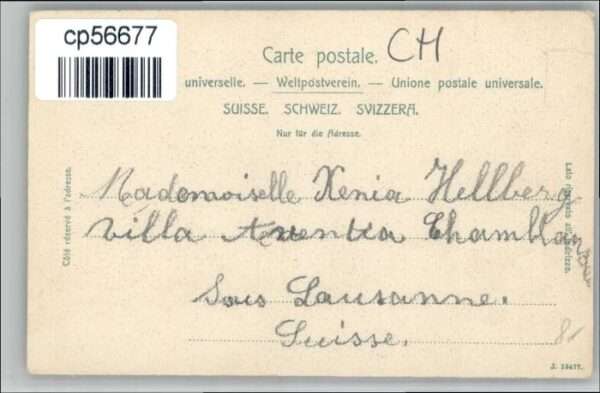 cp56677
Carte postale. CH
universelle. — Weltpostverein. — Unione postale universale.
SUISSE. SCHWEIZ. SVIZZERA.
Nur für die Adresse.
Côté réservé à l'adresse.
Mademoiselle Xenia Hellberg
Villa Aventia Chamblandes
Sous Lausanne.
Suisse.
81
J. 13477.